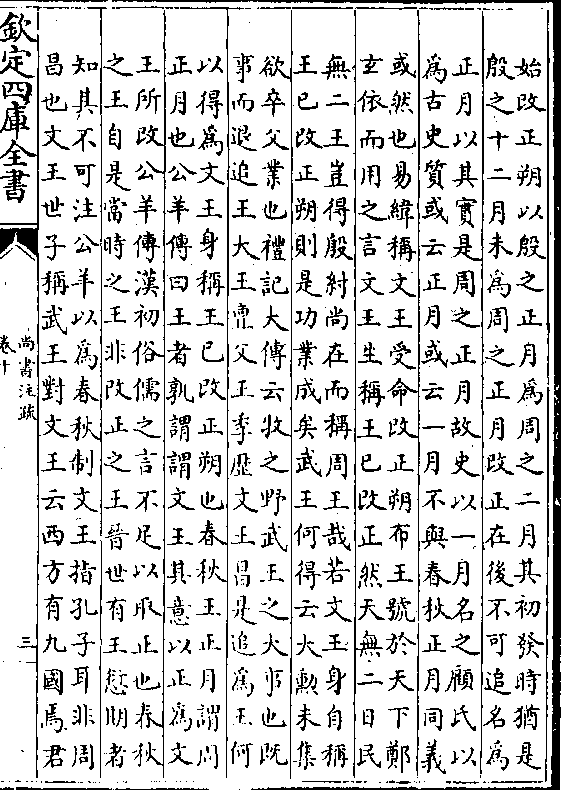 始改正朔以殷之正月為周之二月其初發時猶是
殷之十二月未為周之正月改正在後不可追名為
正月以其實是周之正月故史以一月名之顧氏以
為古史質或云正月或云一月不與春秋正月同義
或然也易緯稱文王受命改正朔布王號於天下鄭
玄依而用之言文王生稱王已改正然天無二日民
無二王豈得殷紂尚在而稱周王哉若文王身自稱
王已改正朔則是功業成矣武王何得云大勳未集
欲卒父業也禮記大傳云牧之野武王之大事也既
事而退追王大王亶父王季歷文王昌是追為王何
以得為文王身稱王已改正朔也春秋王正月謂周
正月也公羊傳曰王者孰謂謂文王其意以正為文
王所改公羊傳漢初俗儒之言不足以取正也春秋
之王自是當時之王非改正之王晉世有王愆期者
知其不可注公羊以為春秋制文王指孔子耳非周
昌也文王世子稱武王對文王云西方有九國焉君
欽定四庫全書
尚書注疏
卷十
三